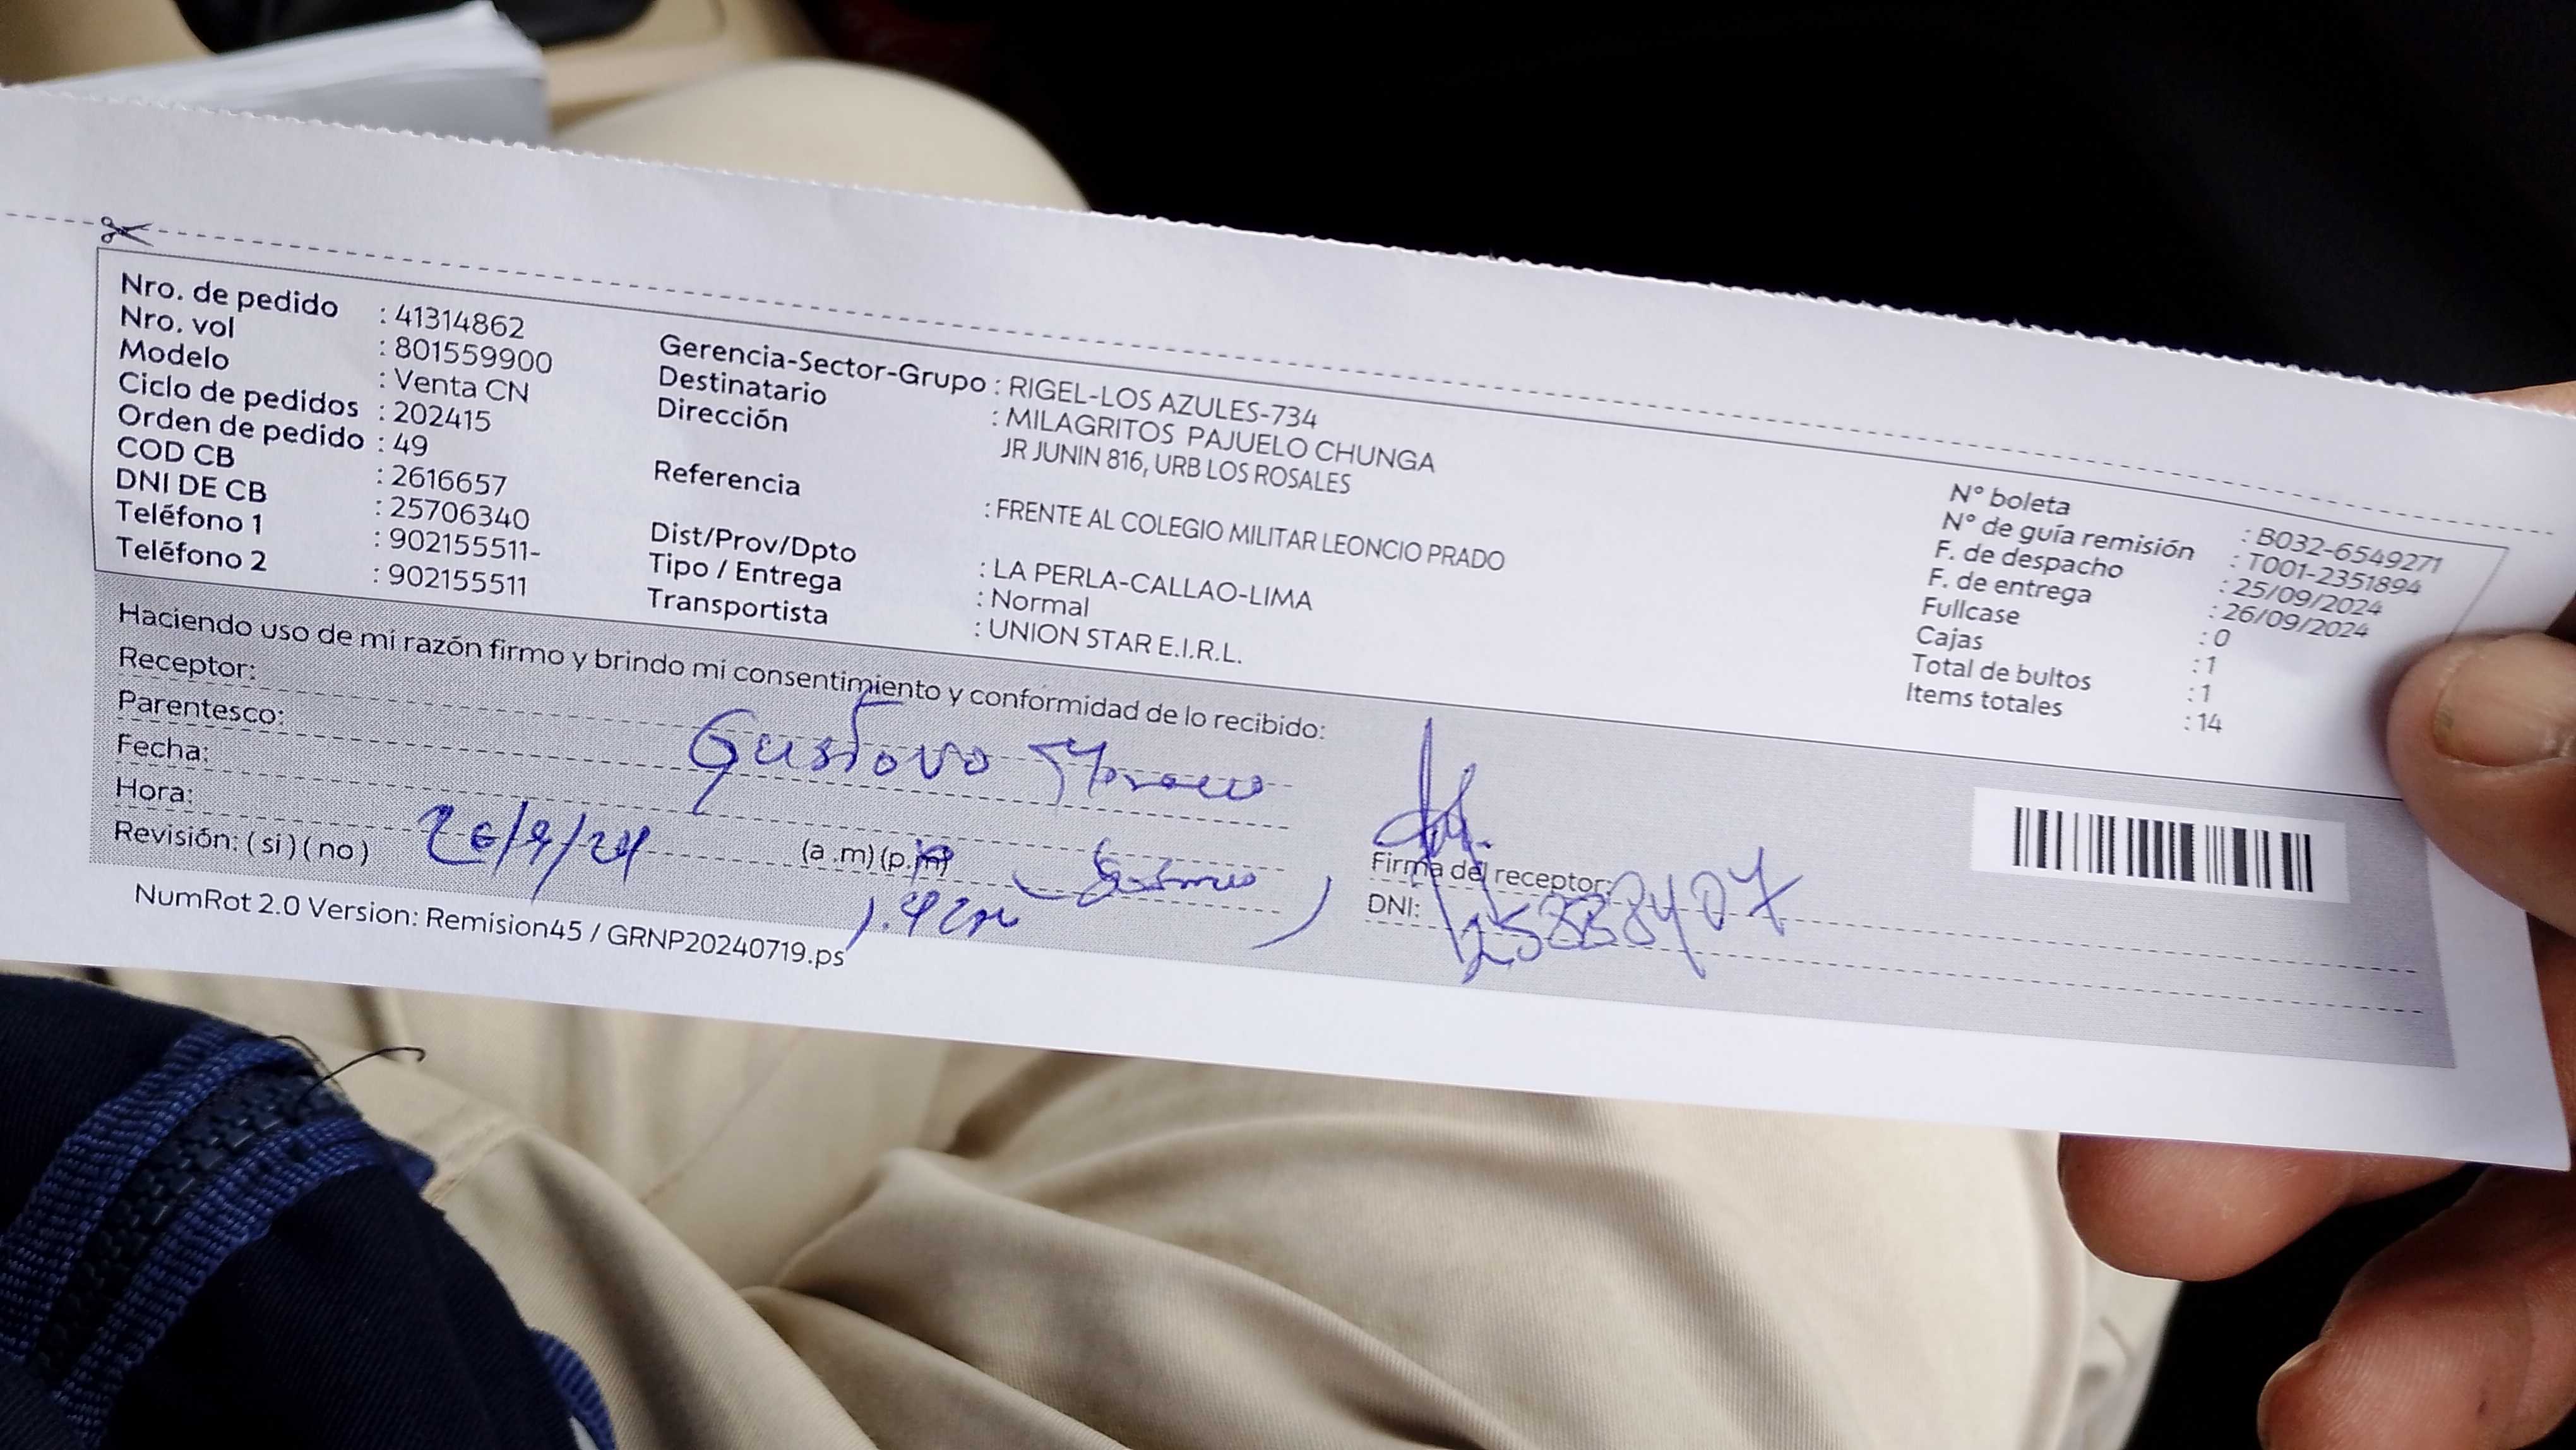 Nro. de pedido : 41314862
Nro. vol : 801559900
Modelo : Venta CN
Ciclo de pedidos : 202415
Orden de pedido : 49
COD CB : 2616657
DNI DE CB : 25706340
Teléfono 1 : 902155511-
Teléfono 2 : 902155511
Gerencia-Sector-Grupo : RIGEL-LOS AZULES-734
Destinatario : MILAGRITOS PAJUELO CHUNGA
Dirección JR JUNIN 816, URB LOS ROSALES
Referencia : FRENTE AL COLEGIO MILITAR LEONCIO PRADO
Dist/Prov/Dpto : LA PERLA-CALLAO-LIMA
Tipo / Entrega : Normal
Transportista : UNION STAR E.I.R.L.
N° boleta : B032-6549271
N° de guía remisión : T001-2351894
F. de despacho : 25/09/2024
F. de entrega : 26/09/2024
Fullcase : 0
Cajas : 1
Total de bultos : 1
Items totales : 14
Haciendo uso de mi razón firmo y brindo mi consentimiento y conformidad de lo recibido:
Receptor:
Parentesco: Gustavo
Fecha:
Hora: 26/9/24 (a .m) (p.m)
Revisión: ( si ) ( no )
Firma del receptor:
DNI:
NumRot 2.0 Version: Remision45 / GRNP20240719.ps